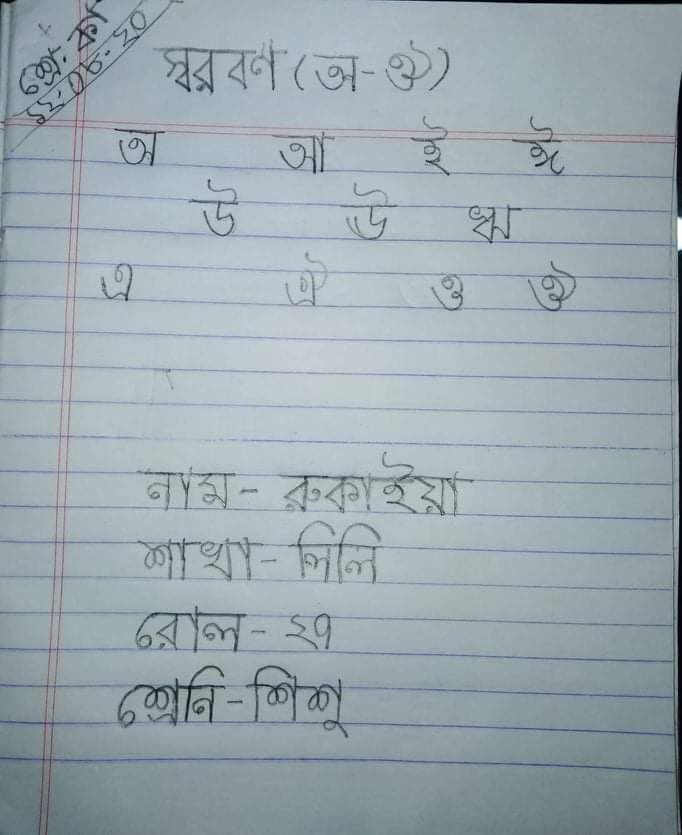 শ্রে. কা
১৯-০৭-২০
স্বরবর্ণ (অ-ঔ)
অ আ ই ঈ
উ ঊ ঋ
এ ঐ ও ঔ
নাম- রুকাইয়া
শাখা- লিলি
রোল- ২৭
শ্রেনি- শিশু